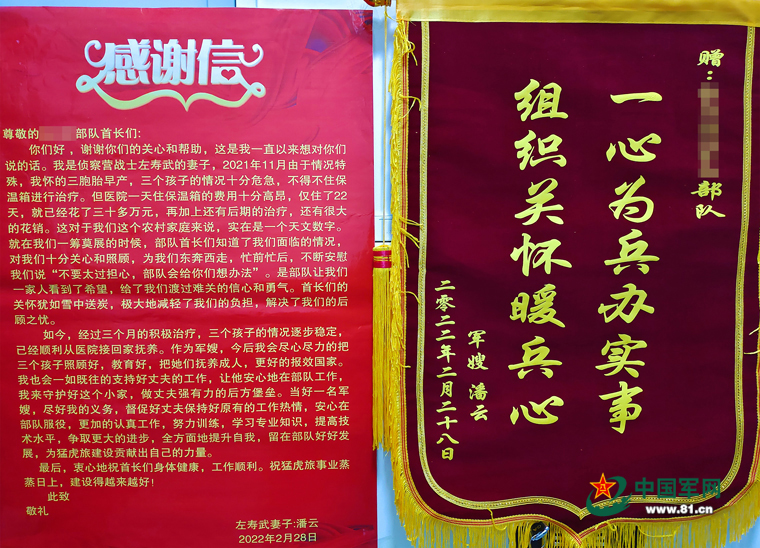 感谢信
尊敬的 部队首长们:
你们好，谢谢你们的关心和帮助，这是我一直以来想对你们
说的话。我是侦察营战士左寿武的妻子，2021年11月由于情况特
殊，我怀的三胞胎早产，三个孩子的情况十分危急，不得不住保
温箱进行治疗。但医院一天住保温箱的费用十分高昂，仅住了22
天，就已经花了三十多万元，再加上还有后期的治疗，还有很大
的花销。这对于我们这个农村家庭来说，实在是一个天文数字。
就在我们一筹莫展的时候，部队首长们知道了我们面临的情况，
对我们十分关心和照顾，为我们东奔西走，忙前忙后，不断安慰
我们说“不要太过担心，部队会给你们想办法”。是部队让我们
一家人看到了希望，给了我们渡过难关的信心和勇气。首长们的
关怀犹如雪中送炭，极大地减轻了我们的负担，解决了我们的后
顾之忧。
如今，经过三个月的积极治疗，三个孩子的情况逐步稳定，
已经顺利从医院接回家抚养。作为军嫂，今后我会尽心尽力的把
三个孩子照顾好，教育好，把她们抚养成人，更好的报效国家。
我也会一如既往的支持好丈夫的工作，让他安心地在部队工作，
我来守护好这个小家，做丈夫强有力的后方堡垒。当好一名军
嫂，尽好我的义务，督促好丈夫保持好原有的工作热情，安心在
部队服役，更加的认真工作，努力训练，学习专业知识，提高技
术水平，争取更大的进步，全方面地提升自我，留在部队好好发
展，为猛虎旅建设贡献出自己的力量。
最后，衷心地祝首长们身体健康，工作顺利。祝猛虎旅事业蒸
蒸日上，建设得越来越好！
此致
敬礼
左寿武妻子:潘云
2022年2月28日
赠：
部队
一心为兵办实事
组织关怀暖兵心
军嫂 潘云
二零二二年二月二十八日
中国军网
www.81.cn